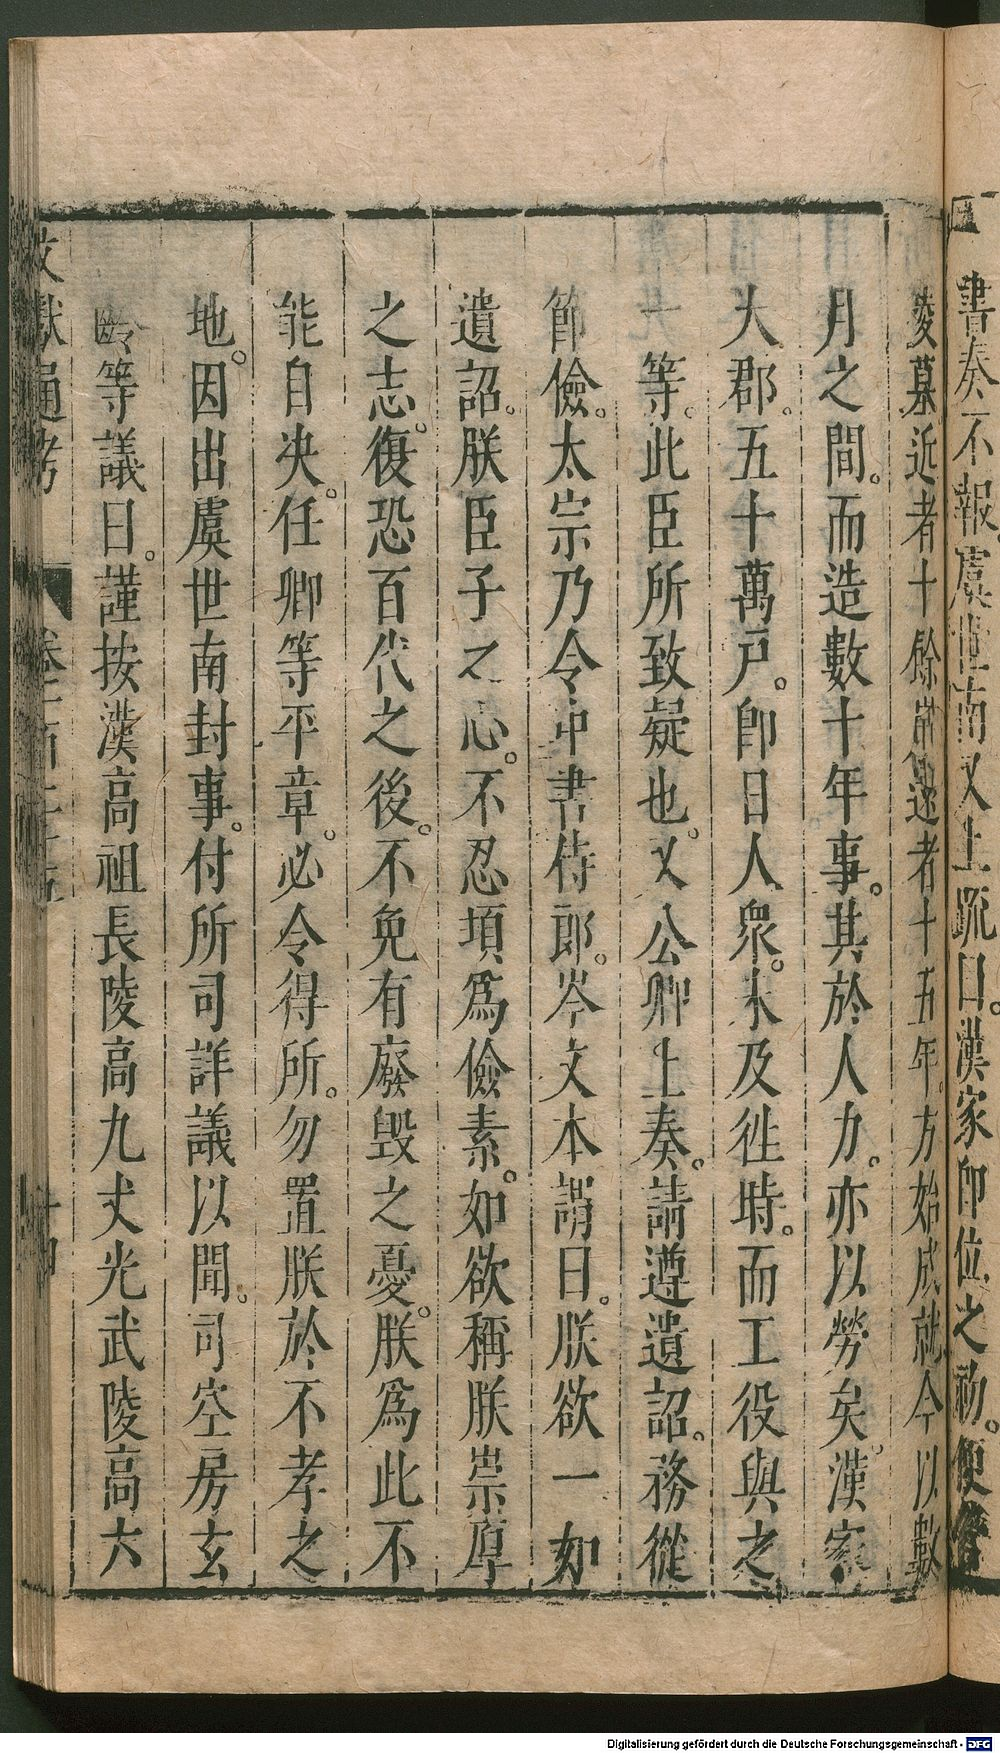 書奏不報。虞世南又上疏曰。漢家即位之初。便營
陵墓。近者十餘歲。遠者十五年。方始成就今以數
月之間。而造數十年事。其於人力。亦以勞矣。漢家
大郡。五十萬戶。即日人衆。未及徃時。而工役與之
等。此臣所致疑也。又公卿上奏。請遵遺詔。務從
節儉。太宗乃令中書侍郎。岑文本謂曰。朕欲一如
遺詔。朕臣子之心。不忍頃爲儉素。如欲稱朕崇厚
之志。復恐百代之後。不免有廢毁之憂。朕爲此不
能自决。任卿等平章。必令得所。勿置朕於不孝之
地。因出虞世南封事。付所司詳議以聞。司空房玄
齡等議曰。謹按漢高祖長陵高九丈光武陵高六
文獻通考 卷一百二十五 十四
Digitalisierung gefördert durch die Deutsche Forschungsgemeinschaft - DFG